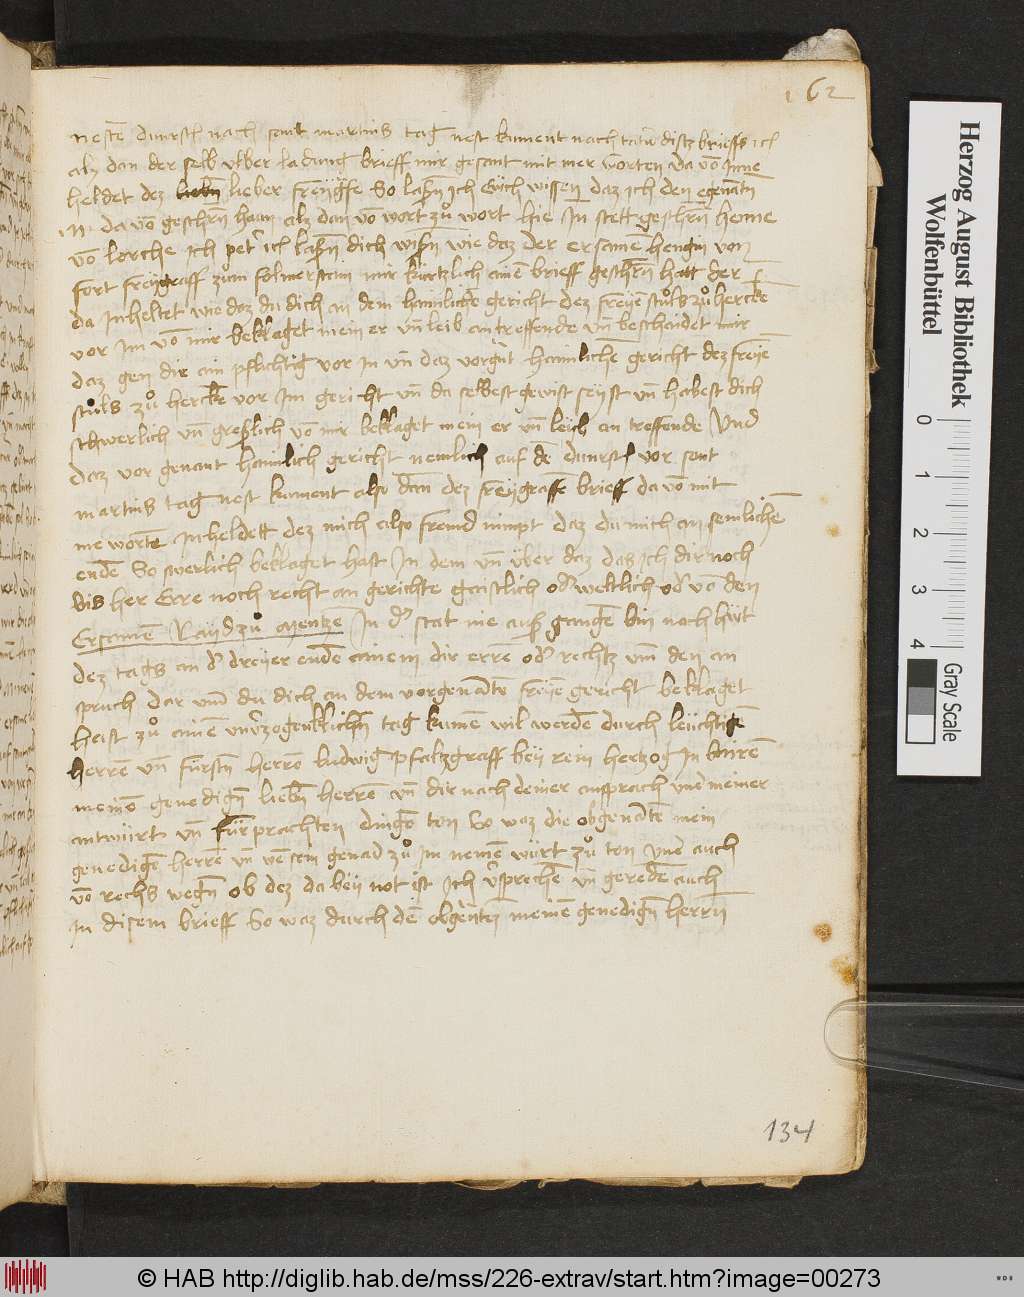 162
nestē dunrstꝭ nach sant martins tag nest kument nach tatū disz brieffs ich
alz dan der selb vber ladung brieff mir gesant mit mer worten da vō Inne
heldet dez lieber freÿgſe So laßn̄ ich Eüch wissen daz ich den egenātn̄
da vō geschrn̄ haun alz dan vō wort zů wort hie In stett geschrn̄ henne
vō lorche ich pet͛ laßn̄ dich wißn̄ wie daz der ersamē hengin von
fort freÿgraff zům folmerstain mir kürtzlich ainē brieff geschrn̄ hatt der
da Inheltet wie daz du dich an dem haimlichē gericht dez freÿē stůls zů herckē
vor Im vō mir beklaget mein er vn̄ leib an treffende vn̄ beschaidet mir
daz gen dir ain pflichtig vor In vn̄ daz vorgn̄t haimlichē gericht dez freÿē
stůls zů herckē vor Im gericht vn̄ da selbest gewist seÿst vn̄ habest dich
schwerlich vn̄ greßlich vō mir beklaget mein er vn̄ leib an treffende Und
daz vor genant haimlich gericht nemlich auf dē dunrstꝭ vor sant
martins tag nest kument also dan dez freÿgraffē brieff da vō mit
me wortē Inheldett dez mich also fremd nimpt daz du mich an semlichē
endē So swerlich beklaget hast In dem vn̄ über daz das ich dir noch
bis her Erre noch recht an gerichte gaistlich od͛ weltlich od͛ vō den
Ersamē Raÿd zů Mentze In d͛ stat nie auß gangē bin noch hüt
dez tags an d͛ dreÿer endē ainem dir errē od͛ rechtz vm̄ den an
spruch dar vm̄ du dich an dem vorgenātē freÿē gericht beklaget
hast zů ainē vnv͛zogenklichn̄ tag kumē wil werdē durch leüchtigē
herrē vn̄ fürstn̄ herrē ludwig Pfaltzgraff beÿ rein hertzog In bairē
meinē genedign̄ liebn̄ herrē vn̄ dir nach deiner ansprach vnd meiner
antwürt vn̄ für prachten dingē ton So waz die obgenātē mein
genedigē herrē vn̄ genad zů Im nemē würt zů ton vnd auch
vō rechs wegn̄ ob dez da beÿ not ist Ich v͛sprechē vn̄ geredē auch
In disem brieff So waz durch dē obgn̄tē meinē genedign̄ herrn̄
134
Herzog August Bibliothek
Wolfenbüttel
0 1 2 3 4
Gray Scale
© HAB http://diglib.hab.de/mss/226-extrav/start.htm?image=00273